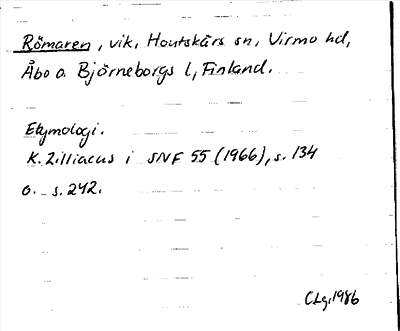 Römaren, vik, Houtskärs sn, Virmo hd,
Åbo o. Björneborgs l, Finland.
Etymologi.
K. Zilliacus i SNF 55 (1966), s. 134
o. s. 242.
CLg. 1986